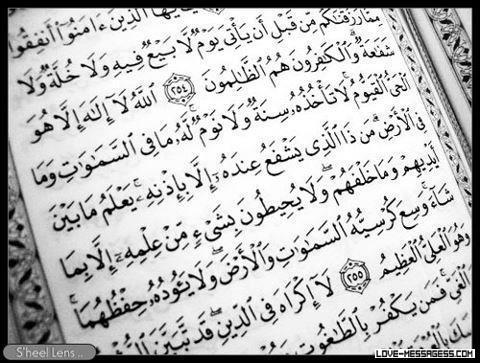 يَـٰٓأَيُّهَا ٱلَّذِينَ ءَامَنُوٓا۟ أَنفِقُوا۟
مِمَّا رَزَقْنَـٰكُم مِّن قَبْلِ أَن يَأْتِىَ يَوْمٌ لَّا بَيْعٌ فِيهِ وَلَا خُلَّةٌ وَلَا
شَفَـٰعَةٌ ۗ وَٱلْكَـٰفِرُونَ هُمُ ٱلظَّـٰلِمُونَ ٢٥٤ ٱللَّهُ لَآ إِلَـٰهَ إِلَّا هُوَ
ٱلْحَىُّ ٱلْقَيُّومُ ۚ لَا تَأْخُذُهُۥ سِنَةٌ وَلَا نَوْمٌ ۚ لَّهُۥ مَا فِى ٱلسَّمَـٰوَٰتِ وَمَا
فِى ٱلْأَرْضِ ۗ مَن ذَا ٱلَّذِى يَشْفَعُ عِندَهُۥٓ إِلَّا بِإِذْنِهِۦ ۚ يَعْلَمُ مَا بَيْنَ
أَيْدِيهِمْ وَمَا خَلْفَهُمْ ۖ وَلَا يُحِيطُونَ بِشَىْءٍ مِّنْ عِلْمِهِۦٓ إِلَّا بِمَا
شَآءَ ۚ وَسِعَ كُرْسِيُّهُ ٱلسَّمَـٰوَٰتِ وَٱلْأَرْضَ ۖ وَلَا يَـُٔودُهُۥ حِفْظُهُمَا ۚ
وَهُوَ ٱلْعَلِىُّ ٱلْعَظِيمُ ٢٥٥ لَآ إِكْرَاهَ فِى ٱلدِّينِ ۖ قَد تَّبَيَّنَ
ٱلْغَىِّ ۚ فَمَن يَكْفُرْ بِٱلطَّـٰغُوتِ
S'heel Lens ..
LOVE-MESSAGESS.COM